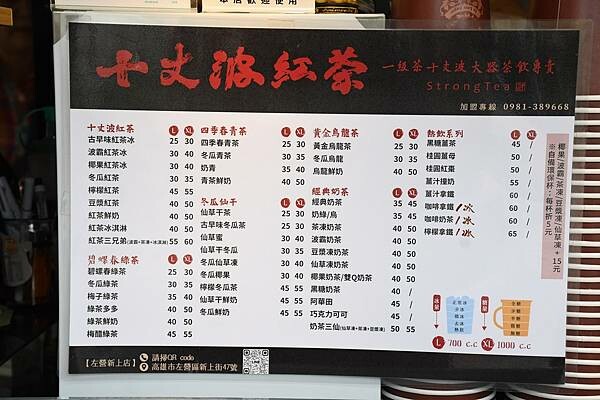 本店歡迎使用
十丈波紅茶
一級茶十丈波大器茶飲專賣
StrongTea
加盟專線 0981-389668
十丈波紅茶 L XL
古早味紅茶冰 25 30
波霸紅茶冰 30 40
椰果紅茶冰 30 40
冬瓜紅茶 30 40
檸檬紅茶 45 55
豆漿紅茶 40 50
紅茶鮮奶 40 50
紅茶冰淇淋 40 50
紅茶三兄弟(波霸+茶凍+冰淇淋) 55 60
碧螺春綠茶
碧螺春綠茶 25 30
冬瓜綠茶 30 35
梅子綠茶 35 40
綠茶多多 40 50
綠茶鮮奶 40 50
梅醋綠茶 45 55
四季春青茶 L XL
四季春青茶 25 30
冬瓜青茶 30 35
奶青 35 40
青茶鮮奶 40 50
冬瓜仙干
仙草干茶 25 30
古早味冬瓜茶 25 30
仙草蜜 30 40
仙草干冬瓜 30 35
冬瓜仙草凍 30 40
冬瓜椰果 30 40
檸檬冬瓜茶 45 55
仙草干鮮奶 45 55
冬瓜鮮奶 45 55
黃金烏龍茶 L XL
黃金烏龍茶 25 30
冬瓜烏龍 30 35
烏龍鮮奶 40 50
經典奶茶
經典奶茶 35 45
奶綠/烏 35 45
茶凍奶茶 40 50
波霸奶茶 40 50
豆漿凍奶茶 40 50
仙草凍奶茶 40 50
椰果奶茶/雙Q奶茶 40 50
黑糖奶茶 40 /
阿華田 45 /
巧克力可可 45 /
奶茶三仙(仙草凍+茶凍+豆漿凍) 50 55
熱飲系列 L XL
黑糖薑茶 45 /
桂圓薑母 50 /
桂圓紅棗 50 /
薑汁撞奶 55 /
薑汁拿鐵 60 /
咖啡拿鐵/冰 60 /
咖啡奶茶/冰 60 /
檸檬拿鐵/冰 65 /
椰果/波霸/茶凍/豆漿凍/仙草凍 + 15元
※自備環保杯：每杯折5元
冰量
正常冰
少冰
微冰
去冰
熱飲
糖量
全糖
少糖
半糖
微糖
無糖
L 700 c.c XL 1000 c.c
【左營新上店】
請掃QR code
高雄市左營區新上街47號
LINE